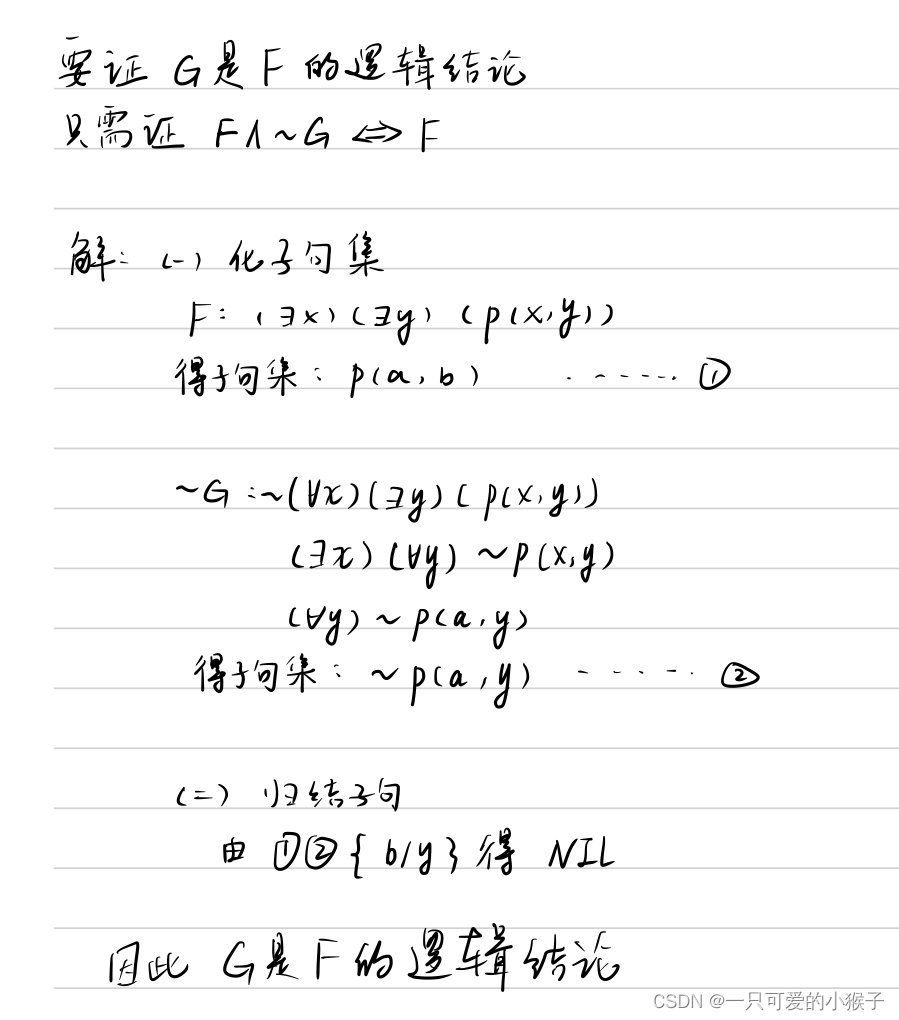 要证 G是F的逻辑结论
只需证 F∧~G ⇔ F
解: (一) 化子句集
F: (∃x)(∃y)(p(x,y))
得子句集: p(a,b) ······ ①
~G:~(∀x)(∃y)(p(x,y))
(∃x)(∀y)~p(x,y)
(∀y)~p(a,y)
得子句集: ~p(a,y) ······ ②
(二) 归结子句
由 ①②{b/y}得 NIL
因此 G是F的逻辑结论
CSDN @一只可爱的小猴子